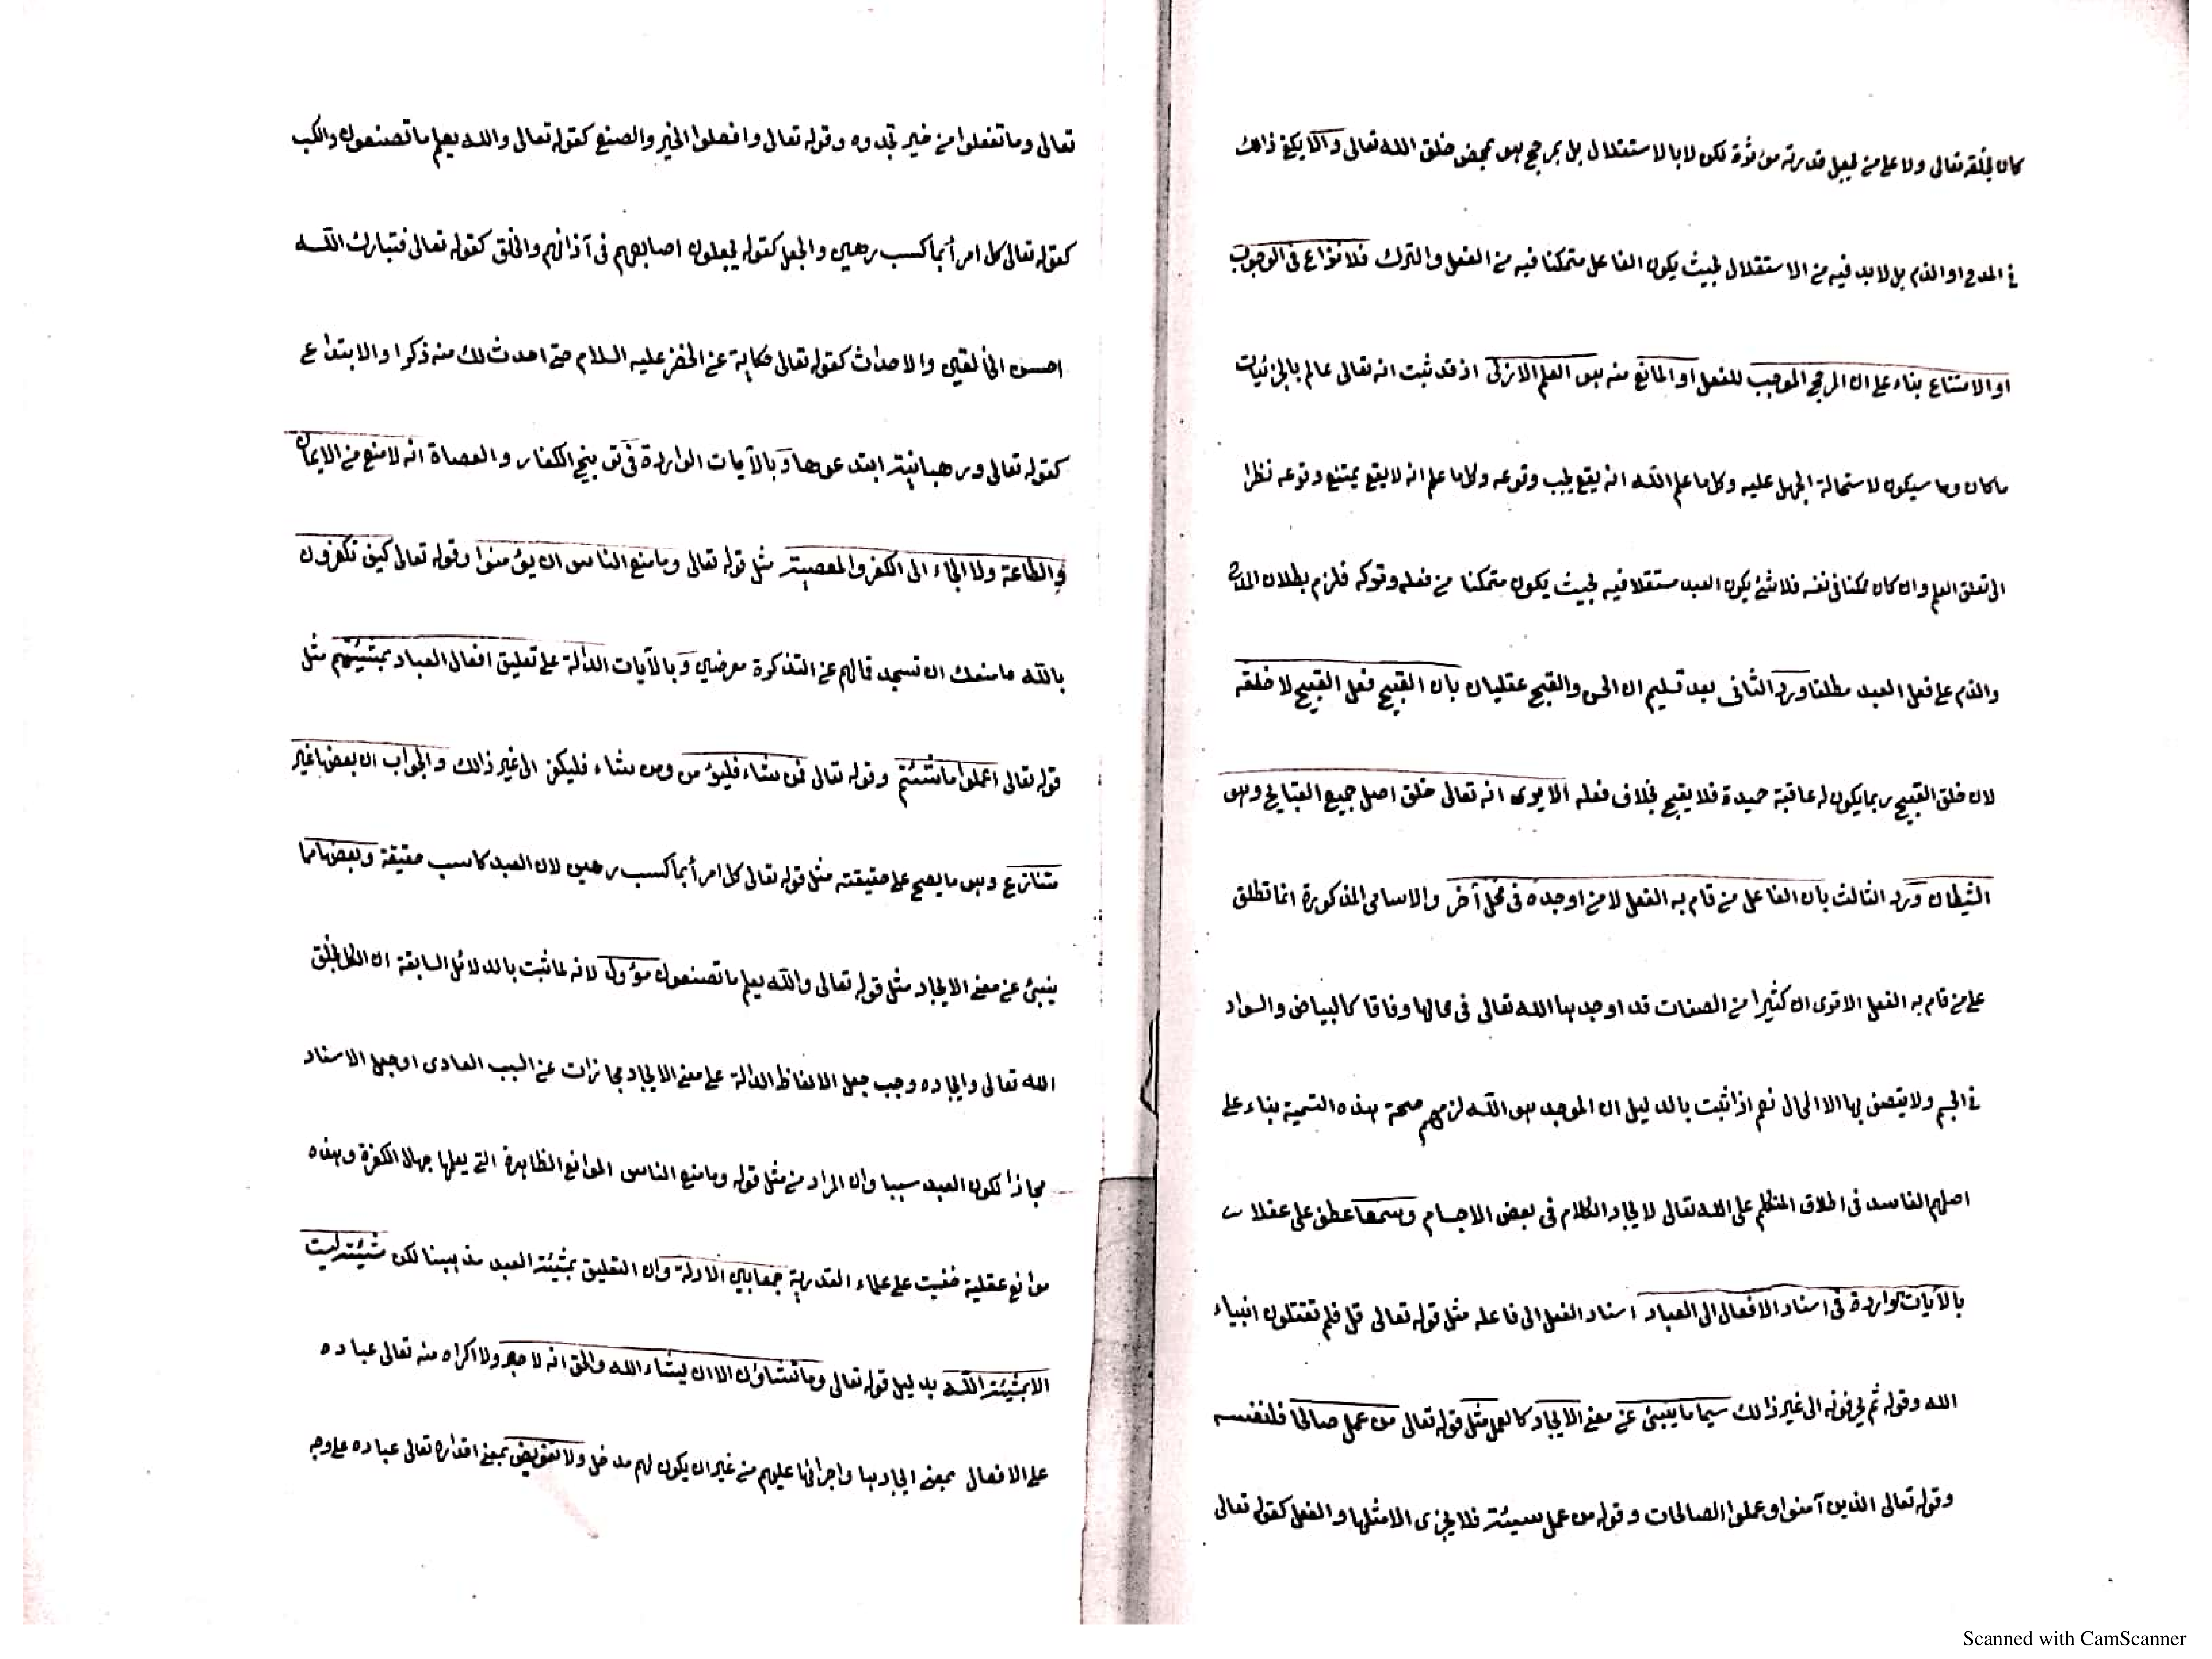 كان بخلقه تعالى ولا على من يجعل قدرته مؤثرة لكن لا بالاستقلال بل بمرجح هو بمحض خلق الله تعالى والا يكفي ذالك
في المدح او الذم بل لا بد فيه من الاستقلال بحيث يكون الفاعل متمكنا فيه من الفعل والترك فلا نزاع في الوجوب
او الامتناع بناء على ان المرجح الموجب للفعل او المانع منه هو العلم الازلى اذ قد ثبت انه تعالى عالم بالجزئيات
ما كان وما سيكون لاستحالة الجهل عليه وكل ما علم الله انه يقع يجب وقوعه وكل ما علم انه لا يقع يمتنع وقوعه نظرا
الى تعلق العلم وان كان ممكنا في نفسه فلا شئ يكون العبد مستقلا فيه بحيث يكون متمكنا من فعله وتركه فلزم بطلان المدح
والذم على فعل العبد مطلقا ورد الثانى بعد تسليم ان الحسن والقبح عقليان بان القبيح فعل القبيح لا خلقه
لان خلق القبيح ربما يكون له عاقبة حميدة فلا يقبح بخلاف فعله الا يرى انه تعالى خلق اصل جميع القبايح وهو
الشيطان ورد الثالث بان الفاعل من قام به الفعل لا من اوجده فى محل آخر والاسامى المذكورة انما تطلق
على من قام به الفعل الا ترى ان كثيرا من الصفات قد اوجدها الله تعالى فى محالها وفاقا كالبياض والسواد
في الجسم ولا يتصف بها الا المحال نعم اذا ثبت بالدليل ان الموجد هو الله لزمهم صحة هذه التسمية بناء على
اصلهم الفاسد فى اطلاق المتكلم على الله تعالى لايجاد الكلام فى بعض الاجسام وسمعا عطف على عقلا
بالآيات الواردة فى اسناد الافعال الى العباد اسناد الفعل الى فاعله مثل قوله تعالى قل فلم تقتلون انبياء
الله وقوله ثم يحرفونه الى غير ذالك سيما ما ينبئ عن معنى الايجاد كالعمل مثل قوله تعالى من عمل صالحا فلنفسه
وقوله تعالى الذين آمنوا وعملوا الصالحات وقوله من عمل سيئة فلا يجزى الا مثلها والفعل كقوله تعالى
تعالى وما تفعلوا من خير تجدوه وقوله تعالى وافعلوا الخير والصنع كقوله تعالى والله يعلم ما تصنعون والكسب
كقوله تعالى كل امرأ بما كسب رهين والجعل كقوله يجعلون اصابعهم فى آذانهم والخلق كقوله تعالى فتبارك الله
احسن الخالقين والاحداث كقوله تعالى حكاية عن الخضر عليه السلام حتى احدث لك منه ذكرا والابتداع
كقوله تعالى ورهبانية ابتدعوها وبالآيات الواردة فى توبيخ الكفار والعصاة انه لا منع من الايمان
والطاعة ولا الجاء الى الكفر والمعصية مثل قوله تعالى وما منع الناس ان يؤمنوا وقوله تعالى كيف تكفرون
بالله ما منعك ان تسجد فما لهم عن التذكرة معرضين وبالآيات الدالة على تعليق افعال العباد بمشيئتهم مثل
قوله تعالى اعملوا ما شئتم وقوله تعالى فمن شاء فليؤمن ومن شاء فليكفر الى غير ذالك والجواب ان بعضها غير
متنازع وهو ما يصح على حقيقته مثل قوله تعالى كل امرأ بما كسب رهين لان العبد كاسب حقيقة وبعضها مما
ينبئ عن معنى الايجاد مثل قوله تعالى والله يعلم ما تصنعون مؤول لانه لما ثبت بالدلائل السابقة ان الكل بخلق
الله تعالى وايجاده وجب جعل الالفاظ الدالة على معنى الايجاد مجازات عن السبب العادى او جعل الاسناد
مجازا لكون العبد سببا وان المراد من مثل قوله وما منع الناس الموانع الظاهرة التى يعلمها جهال الكفرة وهذه
موانع عقلية خفيت على علماء القدرية جمعا بين الادلة وان التعليق بمشيئة العبد مذهبنا لكن مشيئته ليست
الا بمشيئة الله بدليل قوله تعالى وما تشاؤن الا ان يشاء الله والحق انه لا جبر ولا اكراه منه تعالى عباده
على الافعال بمعنى ايجادها واجرائها عليهم من غير ان يكون لهم مدخل ولا تفويض بمعنى اقداره تعالى عباده على وجه
Scanned with CamScanner